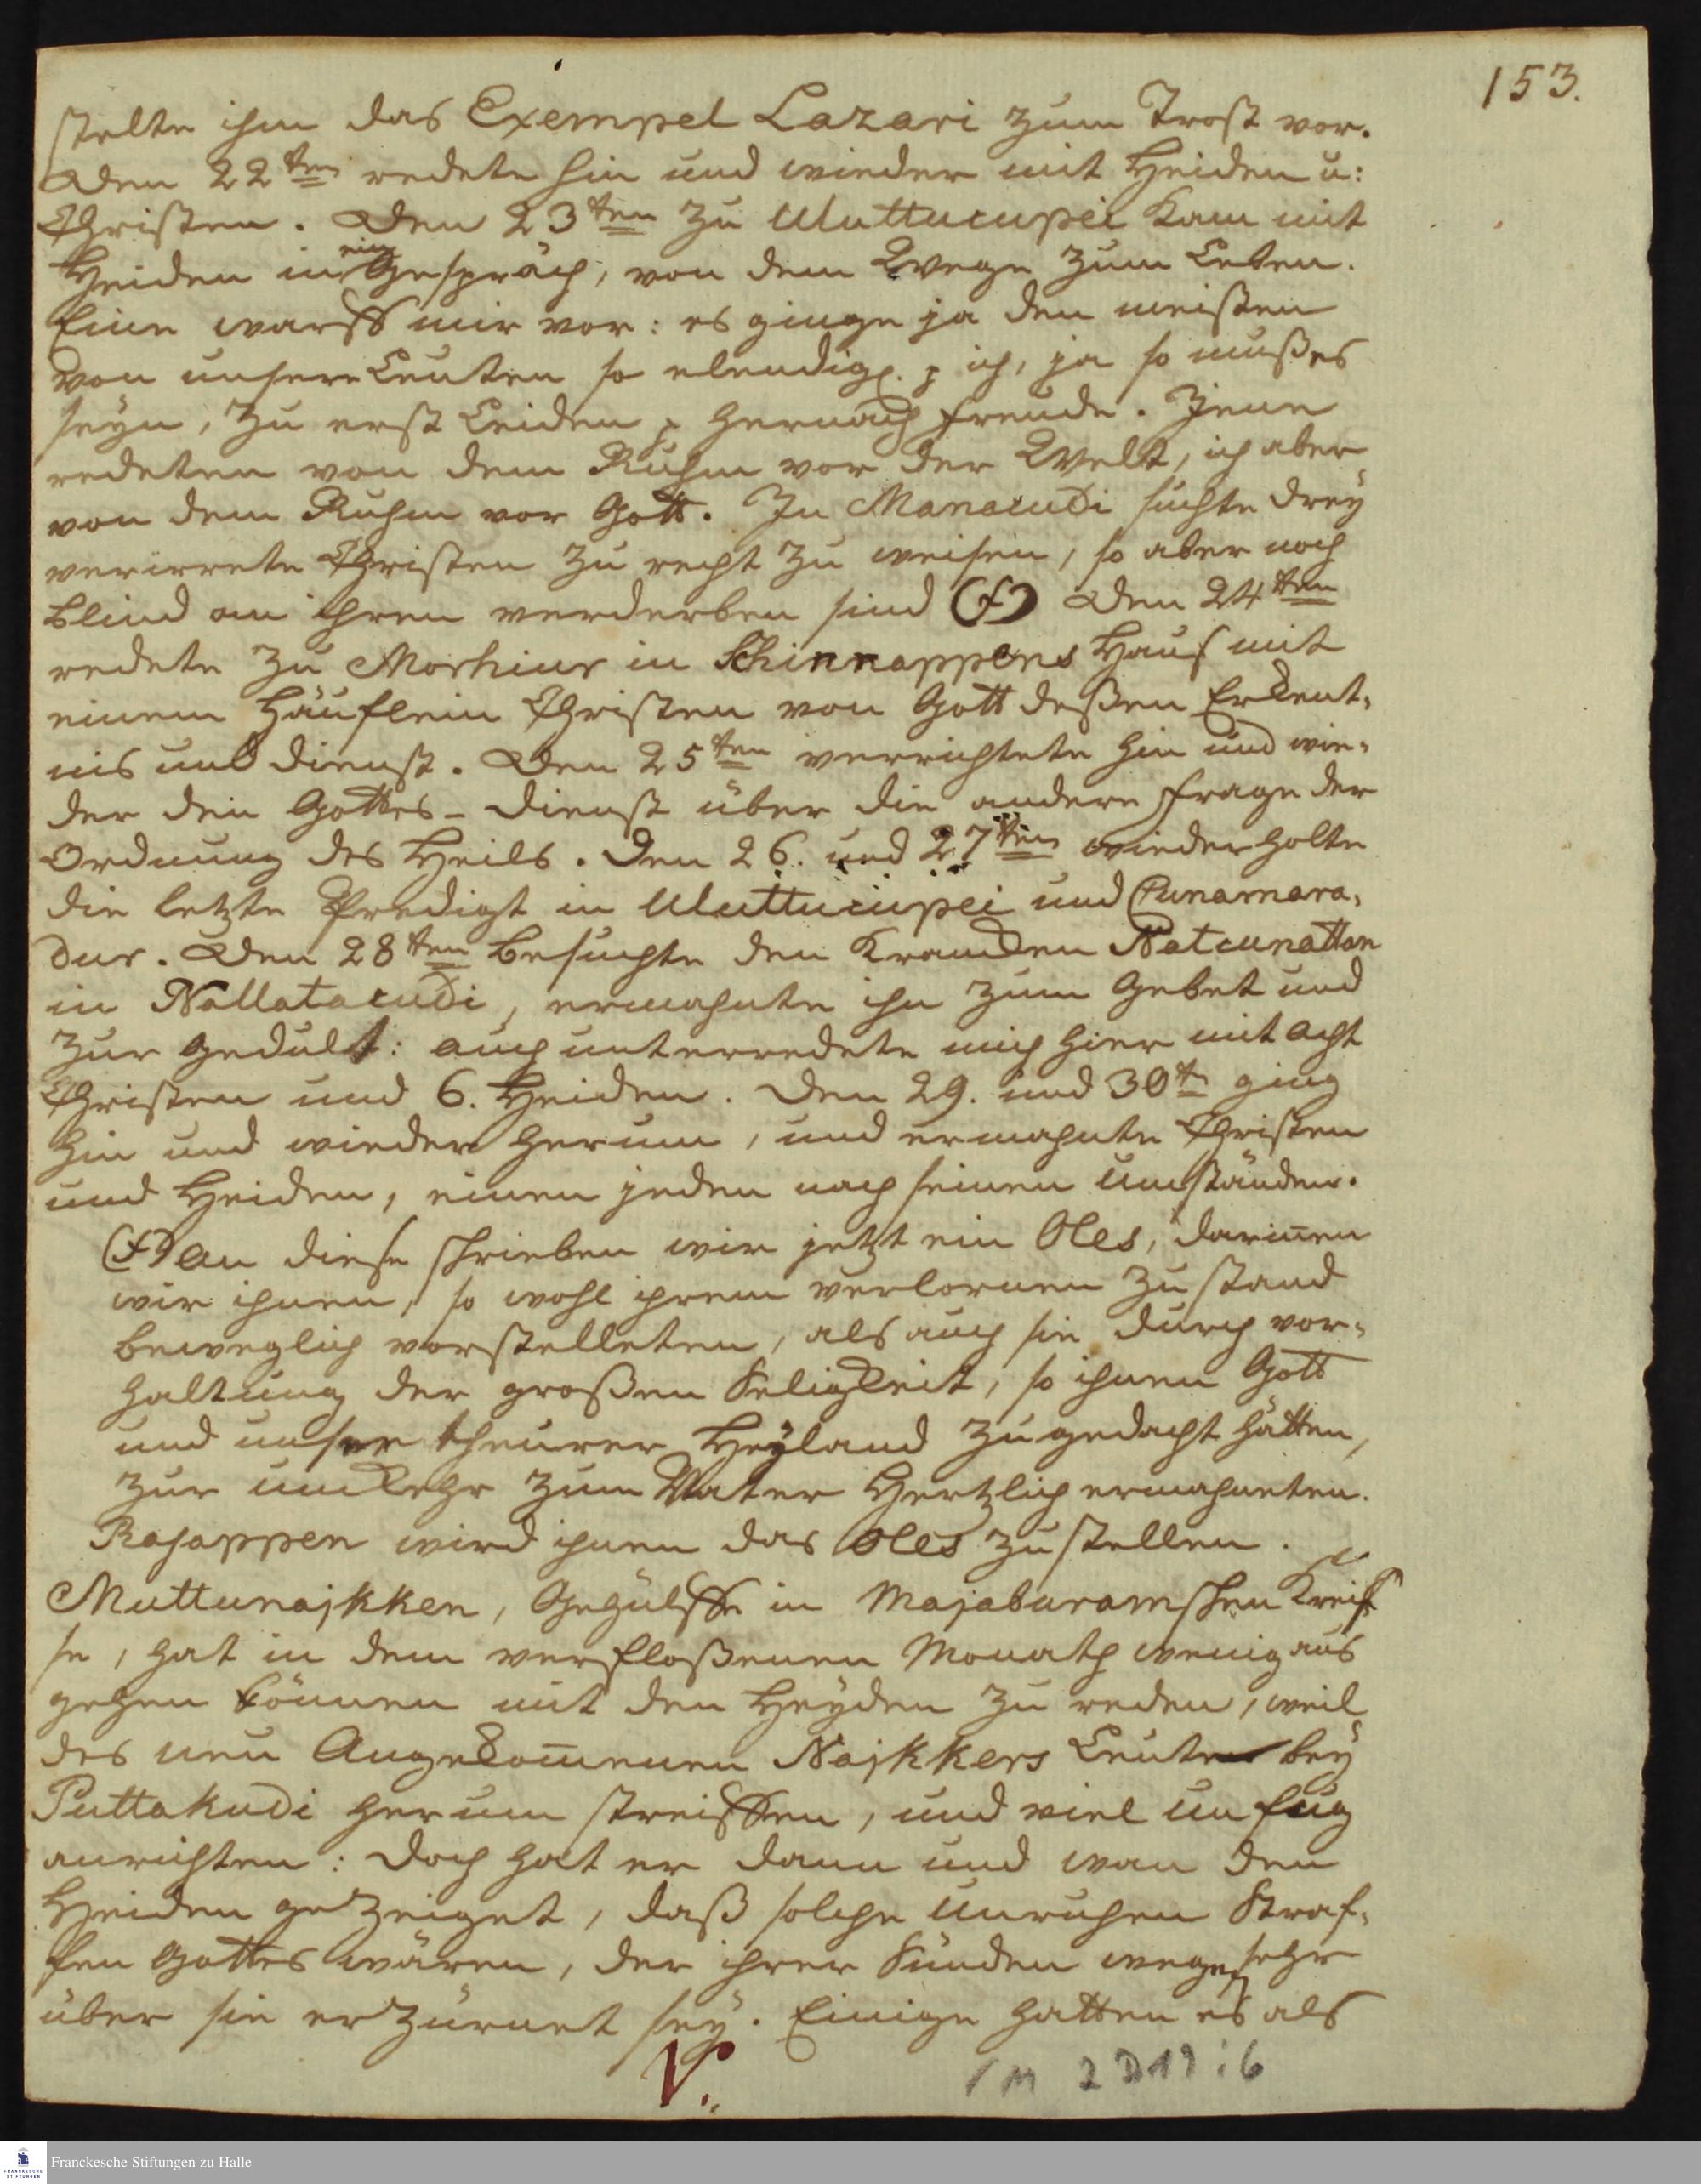 153.
stelte ihm das Exempel Lazari zum Trost vor.
Den 22ten redete hin und wieder mit Heiden u:
Christen. Den 23ten zu Uluttucupei kam mit
Heiden in ein Gespräch, von dem Wege zum Leben.
Eine warff mir vor: es ginge ja den meisten
von unsern Leuten so elendig. ich, ja so muß es
seyn, zu erst Leiden hernach freude. Jene
redeten von dem Ruhm vor der Welt, ich aber
von dem Ruhm vor Gott. In Manacudi suchte drey
verirrete Christen zu recht zu weisen, so aber noch
blind an ihren verderben sind (f) Den 24ten
redete zu Morhiur in Schinnappens Hauß mit
einem Häuflein Christen von Gott deßen Erkent-
nis und dienst. Den 25ten verrichtete hin und wie-
der den Gottes-dienst über die andere frage der
Ordnung des Heils. Den 26. und 27ten wiederholte
die letzte Predigt in Uluttucupei und Cunamara-
dur. Den 28ten besuchte den Krancken Natcunattan
in Nallatacudi, ermahnte ihn zum Gebet und
zur gedult: auch unterredete mich hier mit acht
Christen und 6. Heiden. Den 29. und 30te ging
hin und wieder herum, und ermahnte Christen
und Heiden, einen jeden nach seinen umständen.
(f) An diese schrieben wir jetzt ein Oles, dariñen
wir ihnen, so wohl ihrem verlornen zustand
beweglich vorstelleten, als auch sie durch vor-
haltung der großen Seligkeit, so ihnen Gott
und unser theurer Heyland zugedacht hätten,
zur umkehr zum Vater Hertzlich ermahneten.
Rajappen wird ihnen das Oles zustellen.
Muttunajkken, Gehülffe in Majaburamschen Kreif-
se, hat in dem verfloßenen Monath wenig aus
gehen können mit den Heyden zu reden, weil
des neu Angekom̄enen Najkkers Leute bey
Puttakudi herum streiffen, und viel unfug
anrichten: Doch hat er dann und wan den
Heiden gezeiget, daß solche Unruhen Straf-
fen Gottes wären, der ihrer Sünden wegen sehr
über sie erzürnet sey. Einige hatten es als
V.
M 2 D19:6
Franckesche Stiftungen zu Halle